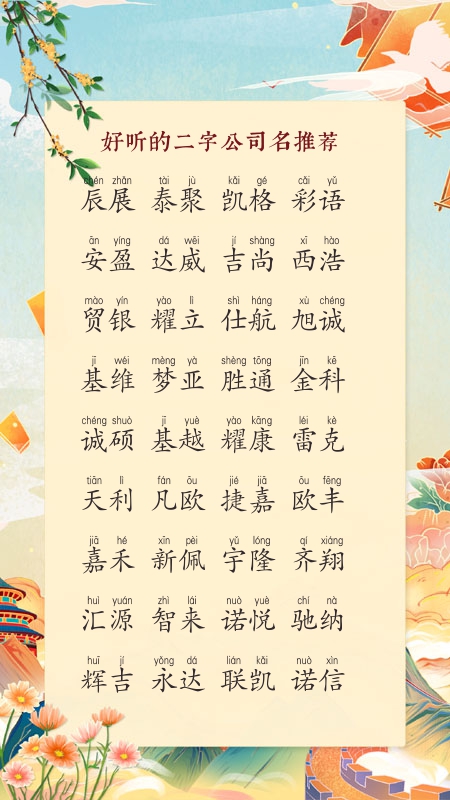 好听的二字公司名推荐
chén zhǎn tài jù kǎi gé cǎi yǔ
辰展 泰聚 凯格 彩语
ān yíng dá wēi jí shàng xī hào
安盈 达威 吉尚 西浩
mào yín yào lì shì háng xù chéng
贸银 耀立 仕航 旭诚
jī wéi mèng yà shèng tōng jīn kē
基维 梦亚 胜通 金科
chéng shuò jī yuè yào kāng léi kè
诚硕 基越 耀康 雷克
tiān lì fán ōu jié jiā ōu fēng
天利 凡欧 捷嘉 欧丰
jiā hé xīn pèi yǔ lóng qí xiáng
嘉禾 新佩 宇隆 齐翔
huì yuán zhì lái nuò yuè chí nà
汇源 智来 诺悦 驰纳
huī jí yǒng dá lián kǎi nuò xìn
辉吉 永达 联凯 诺信